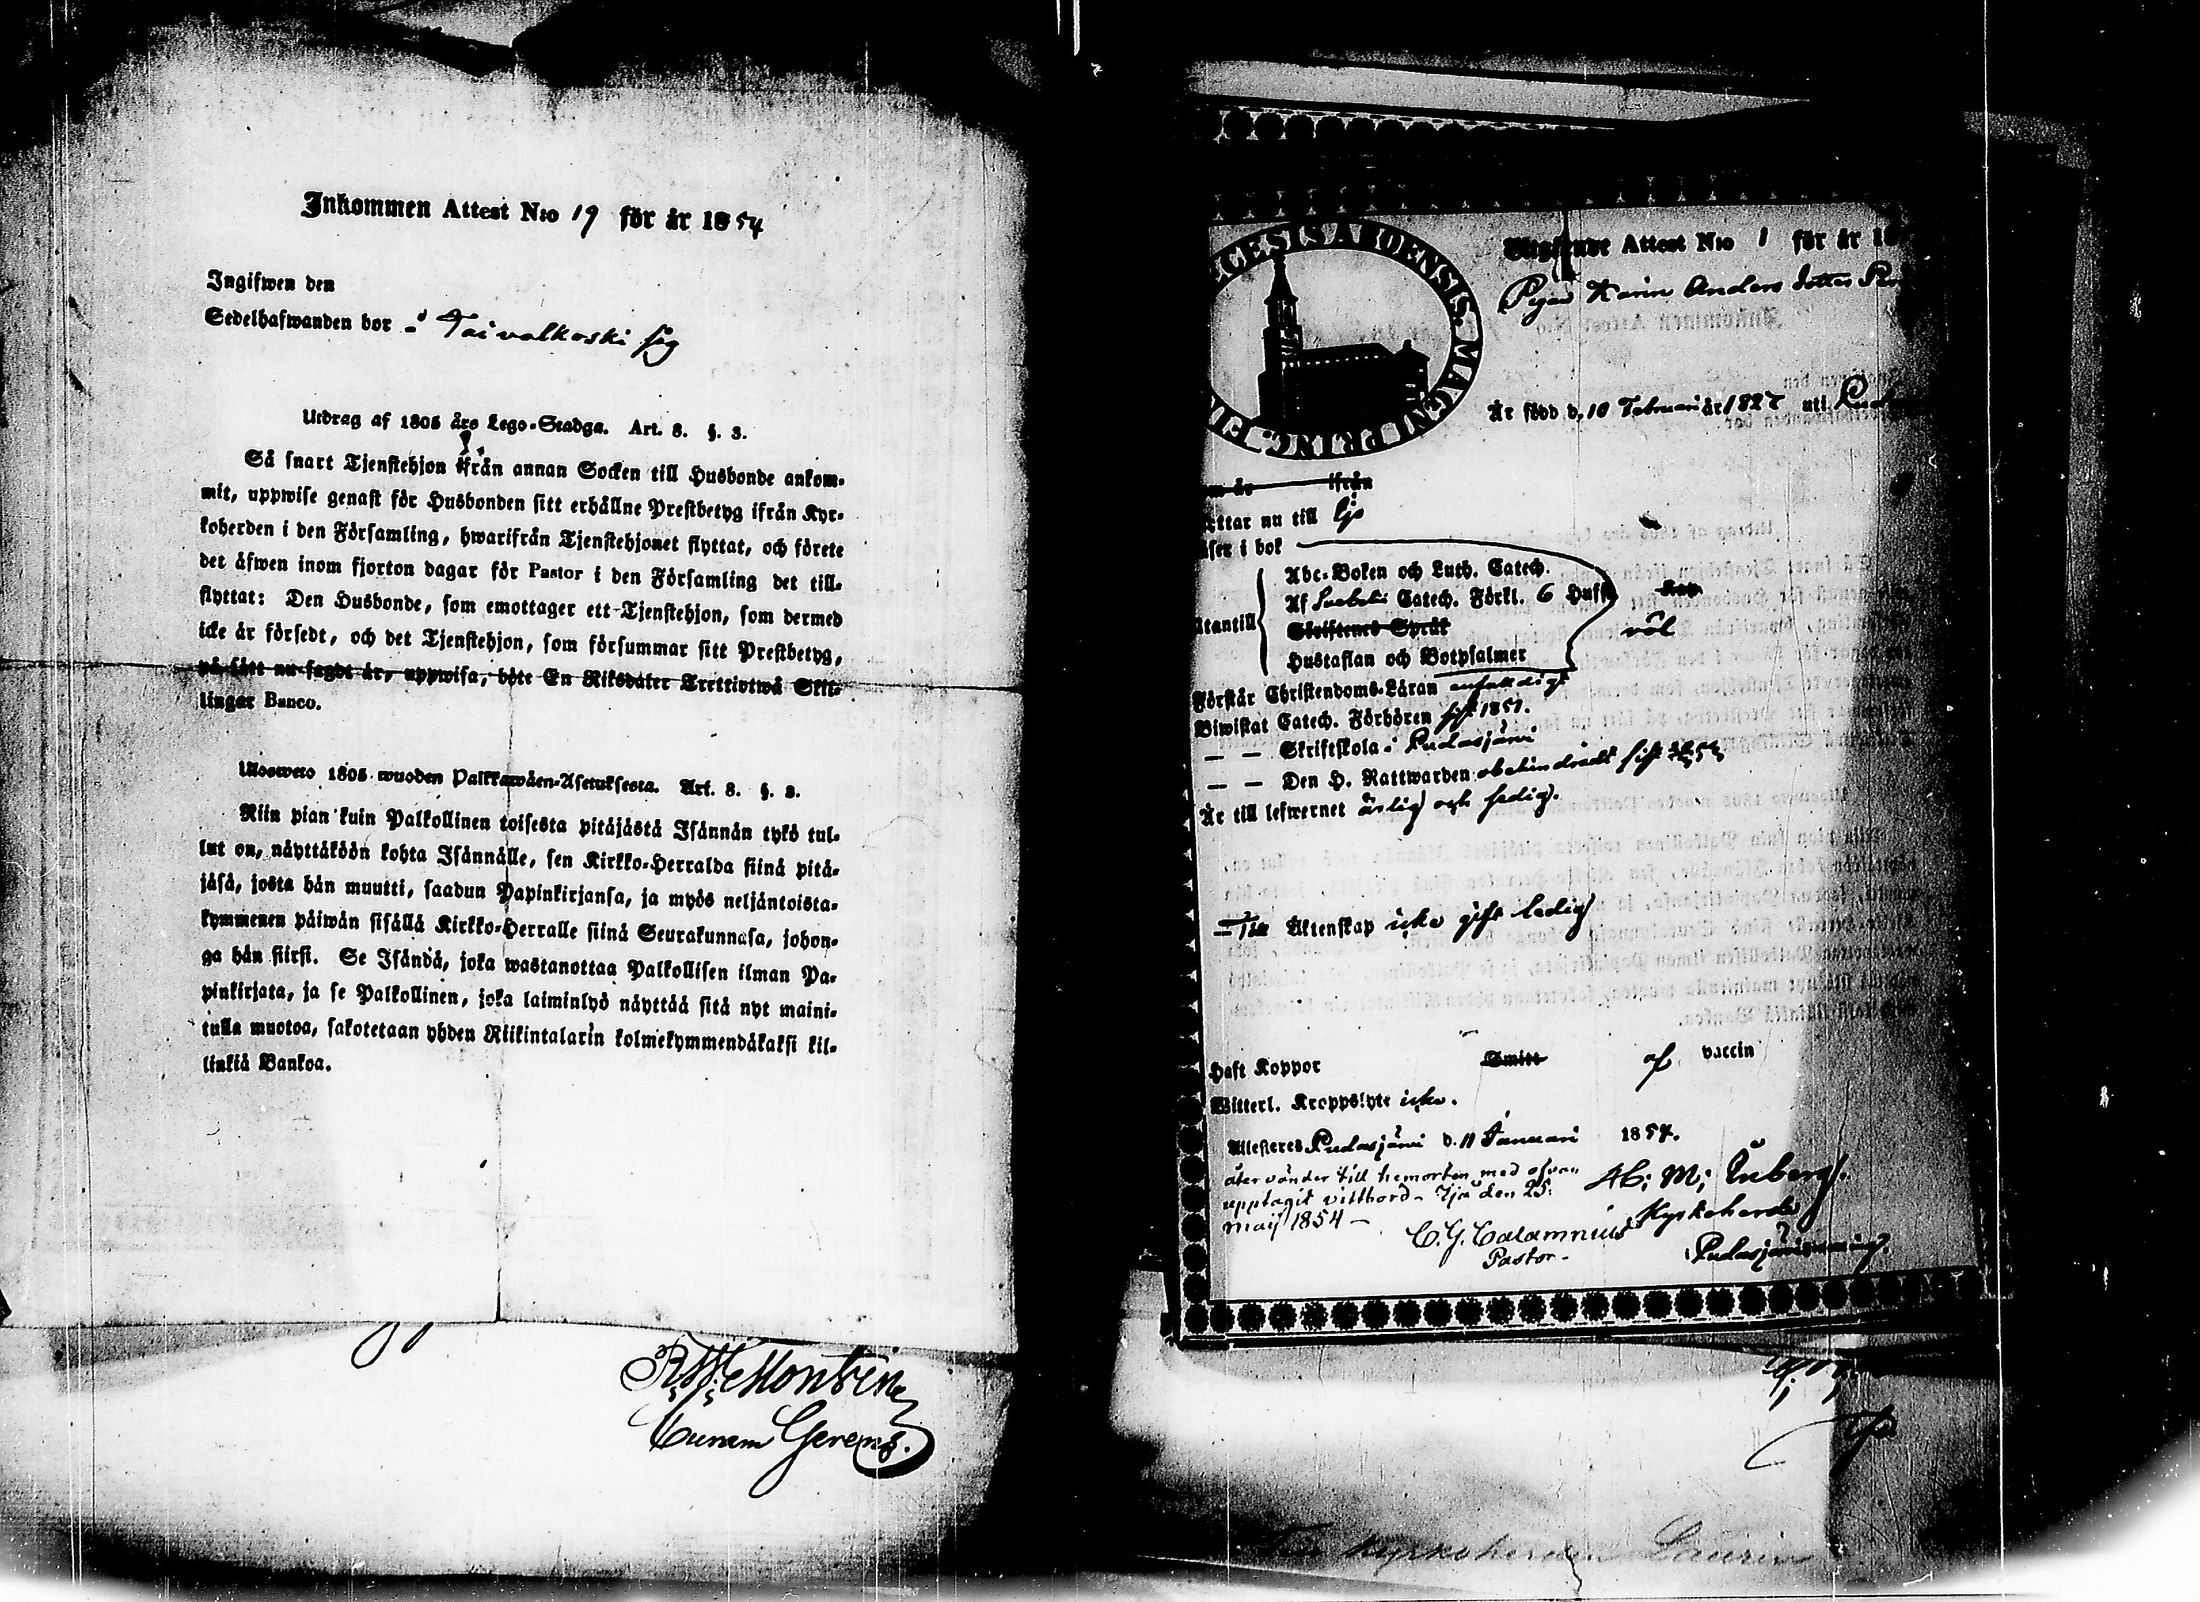 Inkommen Attest N:o 19 för år 1854
Ingifwen den
Sedelhafwanden bor i Taivalkoski
Utdrag af 1805 års Lego-Stadga. Art. 8. §. 3.
Så snart Tjenstehjon ifrån annan Socken till Husbonde ankom-
mit, uppwise genast för Husbonden sitt erhållne Prestbetyg ifrån Kyr-
koherden i den Församling, hwarifrån Tjenstehjonet flyttat, och förete
det äfwen inom fjorton dagar för Pastor i den Församling det till-
flyttat: Den Husbonde, som emottager ett Tjenstehjon, som dermed
icke är försedt, och det Tjenstehjon, som försummar sitt Prestbetyg,
på sätt nu sagdt är, uppwisa, böte En Riksdaler Trettiotwå Skil-
lingar Banco.
Ulosweto 1805 wuoden Palkkawäen-Asetuksesta. Art. 8. §. 3.
Niin pian kuin Palkollinen toisesta pitäjästä Isännän tykö tul-
lut on, näyttäköön kohta Isännälle, sen Kirkko-Herralda siinä pitä-
jäsä, josta hän muutti, saadun Papinkirjansa, ja myös neljäntoista-
kymmenen päiwän sisällä Kirkko-Herralle siinä Seurakunnasa, johon-
ga hän siirsi. Se Isändä, joka wastanottaa Palkollisen ilman Pa-
pinkirjata, ja se Palkollinen, joka laiminlyö näyttää sitä nyt maini-
tulla muotoa, sakotetaan yhden Riikintalarin kolmekymmendäkaksi kil-
linkiä Bankoa.
Curam Gerens.
ECESIS ABOENSIS. MAGNI PRINC. FI
Utgående Attest N:o 1 för år 18
Pigan Karin Anders dotter
Är född d. 10 Februari år 182 uti
ifrån
ttar nu till Ijo
äser i bok
Abc-Boken och Luth. Catech.
Af Svebelii Catech. Förkl. 6 Hufst
tantill Skriftenes Språk väl
Hustaflan och Botpsalmer
Förstår Christendoms-Läran enfaldigt
Biwistat Catech. Förhören sist 1851.
— — Skriftskola i Pudasjärvi
— — Den H. Nattwarden obehindradt sist
Är till lefwernet ärlig och sedig.
Till Äktenskap icke gift ledig
Haft Koppor Smitt af vaccin
Witterl. Kroppslyte icke.
Attesteras Pudasjärvi d. 11 Januari 1854.
återvänder till hemorten med
upptagit vittbord. Ijo den 25:
Maij 1854 –
C. G. Calamnius
Pastor –
Kyrkoherde
Kyrkoherden Laurin